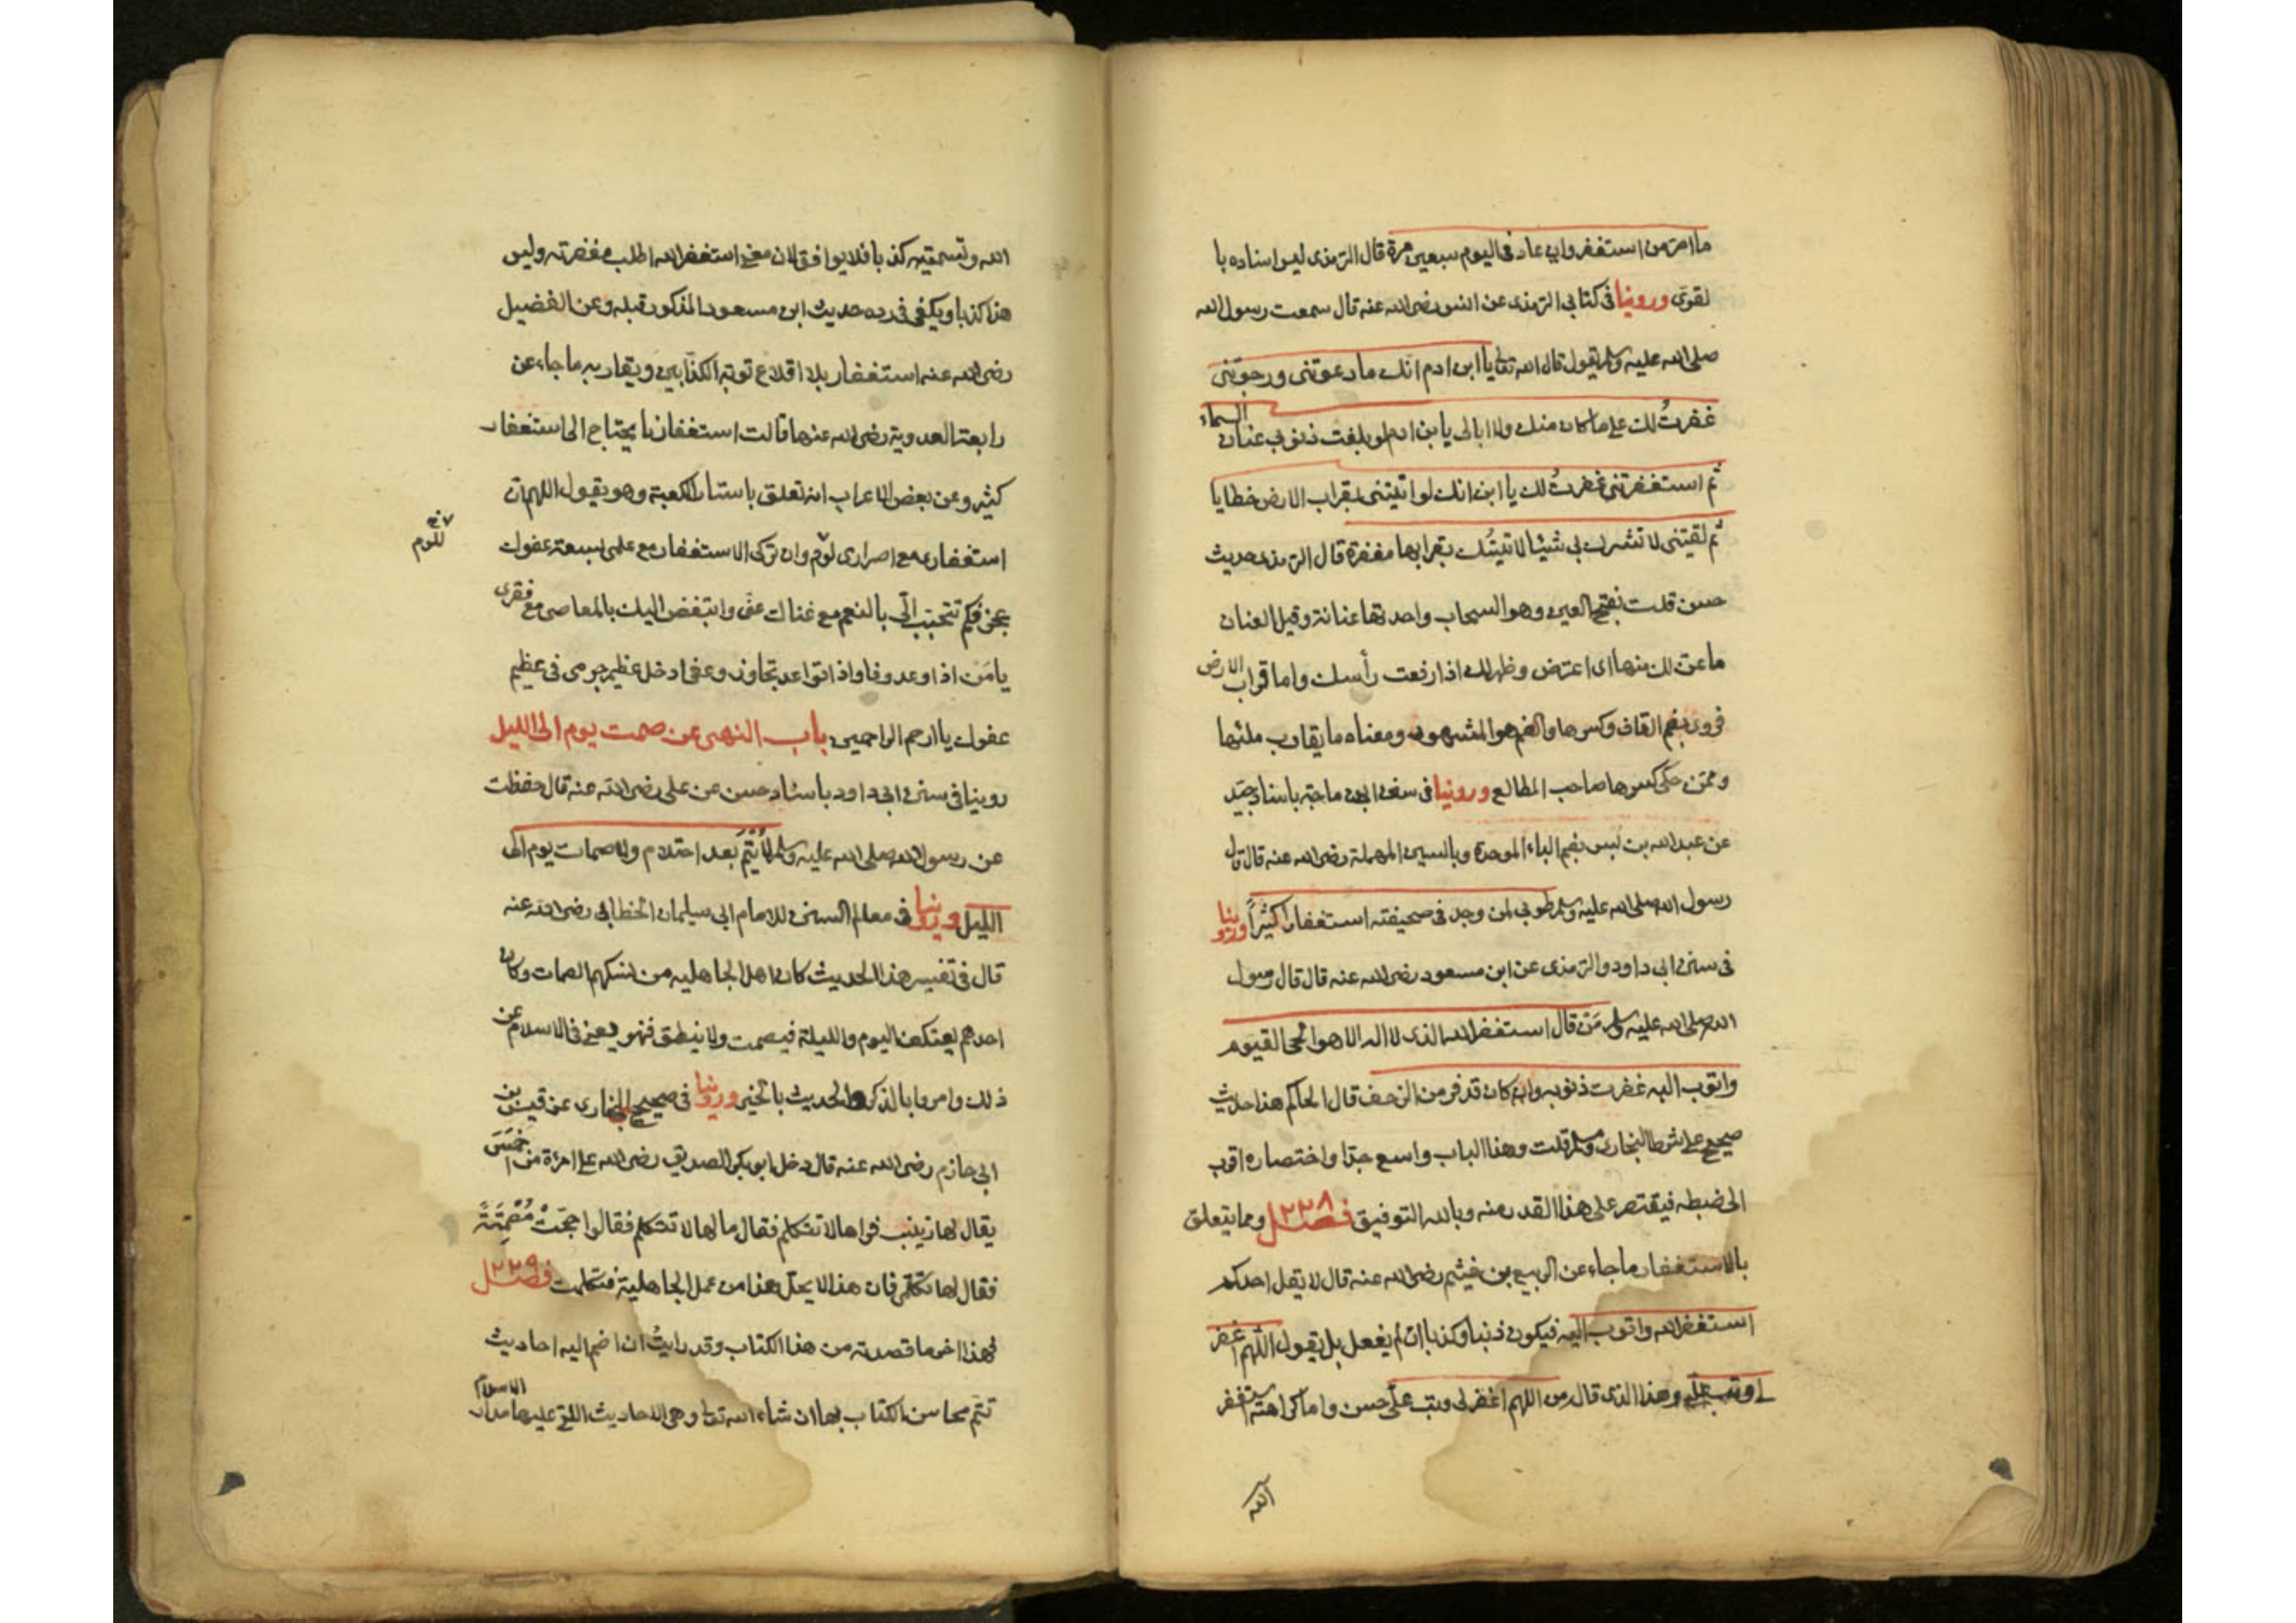 ما اصر من استغفر وان عاد فى اليوم سبعين مرة قال الترمذى ليس اسناده با
لقوى وروينا فى كتابى الترمذى عن انس رضى الله عنه قال سمعت رسول الله
صلى الله عليه وسلم يقول قال الله تعالى يا ابن ادم انك ما دعوتنى ورجوتنى
غفرتُ لك على ما كان منك ولا ابالى يا بن ادم لو بلغت ذنوبك عنان السماء
ثم استغفرتنى غفرتُ لك يا ابن انك لو اتيتنى بقراب الارض خطايا
ثم لقيتنى لا تشرك بى شيئا لاتيتُك بقرابها مغفرة قال الترمذى حديث
حسن قلت بفتح العين وهو السحاب واحدتها عنانة وقيل العنان
ما عن لك منها اى اعترض وظهر لك اذا رفعت رأسك واما قراب الارض
فروى بضم القاف وكسرها والضم هو المشهور ومعناه ما يقارب ملئها
وممن حكى كسرها صاحب المطالع وروينا فى سنن ابن ماجة باسناد جيّد
عن عبد الله بن بسر بضم الباء الموحدة وبالسين المهملة رضى الله عنه قال قال
رسول الله صلى الله عليه وسلم طوبى لمن وجد فى صحيفته استغفارا كثيراً وروينا
فى سنن ابى داود والترمذى عن ابن مسعود رضى الله عنه قال قال رسول
الله صلى الله عليه وسلم مَن قال استغفر الله الذى لا اله الا هو الحى القيوم
واتوب اليه غفرت ذنوبه وان كان قد فر من الزحف قال الحاكم هذا حديث
صحيح على شرط البخارى ومسلم قلت وهذا الباب واسع جدا واختصاره اقرب
الى ضبطه فيقتصر على هذا القدر منه وبالله التوفيق فصل ٢٣٨ ومما يتعلق
بالاستغفار ما جاء عن الربيع بن خيثم رضى الله عنه قال لا يقل احدكم
استغفر الله واتوب اليه فيكون ذنبا وكذبا ان لم يفعل بل يقول اللهم اغفر
لى وتب على وهذا الذى قال من اللهم اغفر لى وتب علىّ حسن واما كراهته استغفر
الله
الله وتسميته كذبا فلا يوافق لان معنى استغفر الله اطلب مغفرته وليس
هذا كذبا ويكفى فى رده حديث ابن مسعود المذكور قبله وعن الفضيل
رضى الله عنه استغفار بلا اقلاع توبة الكذّابين ويقاربه ما جاء عن
رابعة العدوية رضى الله عنها قالت استغفارنا يحتاج الى استغفار
كثير وعن بعض الاعراب انه تعلق باستار الكعبة وهو يقول اللهم ان
استغفارى مع اصرارى لوْم وان تركى الاستغفار مع علمى بسعة عفوك
للوم
عجز فكم تتحبّب الىّ بالنعم مع غناك عنى واتبغض اليك بالمعاصى مع فقرى
يا مَن اذا وعد وفا واذا تواعد تجاوز وعفا ادخل عظيم جرمى فى عظيم
عفوك يا ارحم الراحمين باب النهى عن صمت يوم الى الليل
روينا فى سنن ابى داود باسناد حسن عن على رضى الله عنه قال حفظت
عن رسول الله صلى الله عليه وسلم لا يُتْمَ بعد احتلام ولا صمات يوم الى
الليل وروينا فى معالم السنن للامام ابى سليمان الخطابى رضى الله عنه
قال فى تفسير هذا الحديث كان اهل الجاهليه من نسكهم الصمات وكان
احدهم يعتكف اليوم والليلة فيصمت ولا ينطق فنهو يعنى فى الاسلام عن
ذلك وامروا بالذكر والحديث بالخير وروينا فى صحيح البخارى عن قيس بن
ابى حازم رضى الله عنه قال دخل ابو بكر الصديق رضى الله على امرءة من احمَسَ
يقال لها زينب فراها لا تتكلم فقال ما لها لا تتكلم فقالوا حجّتْ مُصْمِتَةً
فقال لها تكلمى فان هذا لا يحل هذا من عمل الجاهلية فتكلمت فصل ٢٣٩
فهذا اخر ما قصدته من هذا الكتاب وقد رايتُ ان اضم اليه احاديث
تتم محاسن الكتاب بها ان شاء الله تعالى وهى الاحاديث التى عليها مدار الاسلام